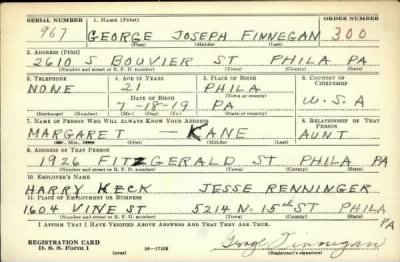 SERIAL NUMBER
1. NAME (Print)
ORDER NUMBER
967
GEORGE JOSEPH FINNEGAN
300
(First) (Middle) (Last)
2. ADDRESS (Print)
2610 S BOUVIER ST PHILA PA
(Number and street or R. F. D. number) (Town) (County) (State)
3. TELEPHONE
4. AGE IN YEARS
5. PLACE OF BIRTH
6. COUNTRY OF CITIZENSHIP
NONE
21
PHILA
(Town or county)
DATE OF BIRTH
7-18-19
PA
U.S.A
(Mo.) (Day) (Yr.)
(State or country)
7. NAME OF PERSON WHO WILL ALWAYS KNOW YOUR ADDRESS
8. RELATIONSHIP OF THAT PERSON
MARGARET — KANE
AUNT
(First) (Middle) (Last)
9. ADDRESS OF THAT PERSON
1926 FITZGERALD ST PHILA PA
(Number and street or R. F. D. number) (Town) (County) (State)
10. EMPLOYER'S NAME
HARRY KECK JESSE RENNINGER
11. PLACE OF EMPLOYMENT OR BUSINESS
1604 VINE ST 5214 N. 15th ST PHILA PA
(Number and street or R. F. D. number) (Town) (County) (State)
I AFFIRM THAT I HAVE VERIFIED ABOVE ANSWERS AND THAT THEY ARE TRUE.
REGISTRATION CARD
D. S. S. Form 1
(over)
16—17105
George Finnegan
(Registrant's signature)